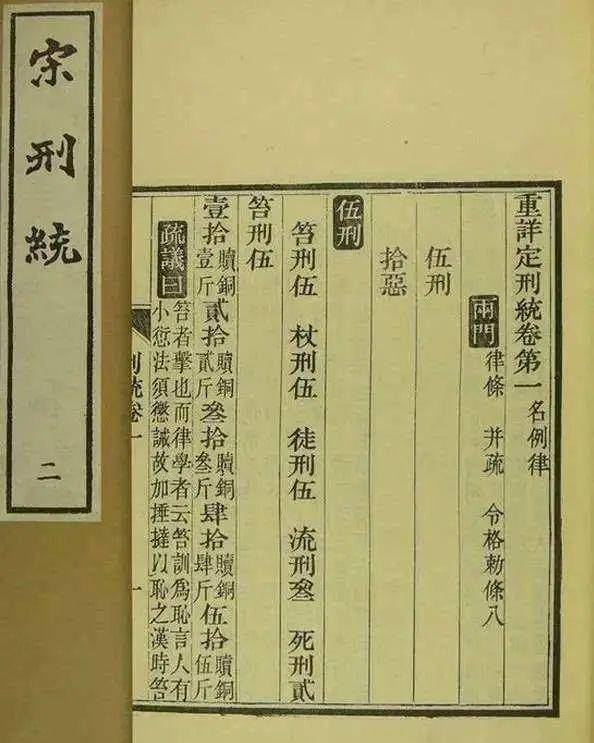 宋刑統
二
重詳定刑統卷第一 名例律
兩門 律條 并疏 令格勅條八
伍刑
拾惡
伍刑
笞刑伍 杖刑伍 徒刑伍 流刑叄 死刑貳
笞刑伍
壹拾贖銅壹斤貳拾贖銅貳斤叄拾贖銅叄斤肆拾贖銅肆斤伍拾贖銅伍斤
疏議曰笞者擊也而律學者云笞訓爲恥言人有
小愆法須懲誡故加捶撻以恥之漢時笞
刑統卷一 一